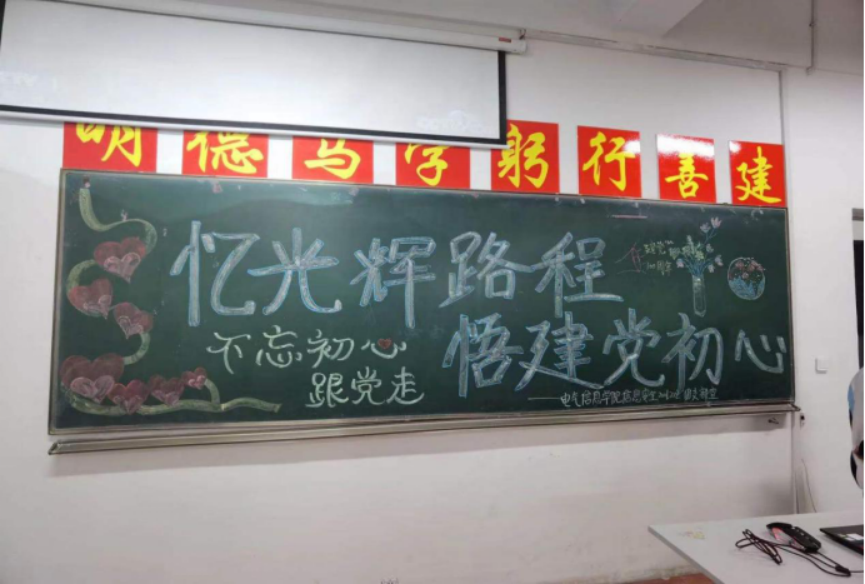 明德笃学躬行善建
忆光辉路程
悟建党初心
不忘初心
跟党走
——电气信息学院信息安全